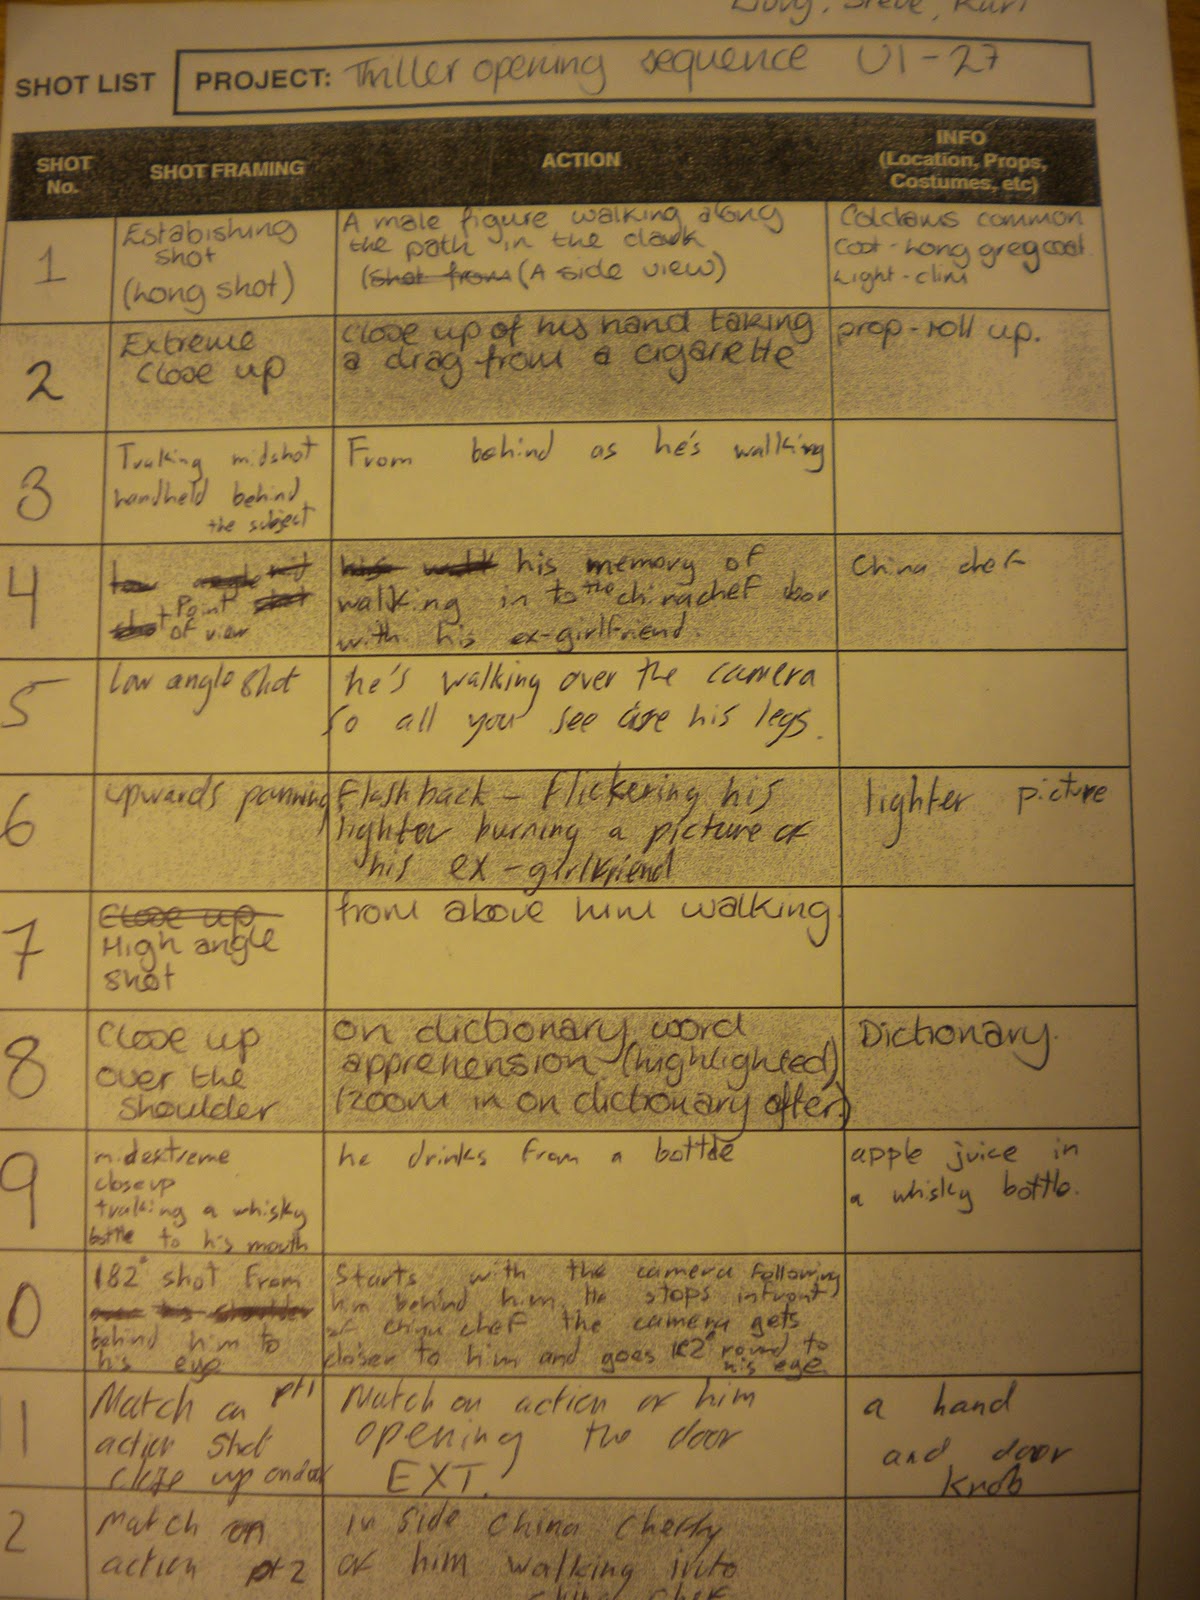 Steve, Kurt
SHOT LIST
PROJECT: Thriller opening sequence U1-27
SHOT No.
SHOT FRAMING
ACTION
INFO
(Location, Props,
Costumes, etc)
1
Estabishing
shot
(Long shot)
A male figure walking along
the path in the dark
(Shot from (A side view)
common
coat - Long grey coat
Light -
2
Extreme
Close up
Close up of his hand taking
a drag from a cigarette
prop - roll up.
3
Traking midshot
handheld behind
the subject
From behind as he's walking
4
low angle mid
shot Point shot
of view
his walk his memory of
walking in to the chinachef door
with his ex-girlfriend.
China chef
5
Low angle shot
he's walking over the camera
so all you see are his legs.
6
Upwards panning
Flashback - flickering his
lighter burning a picture of
his ex-girlfriend
lighter picture
7
Close up
High angle
shot
from above him walking.
8
Close up
over the
shoulder
on dictionary word
apprehension (highlighted)
(zoom in on dictionary after)
Dictionary.
9
midextreme
closeup
traking a whisky
bottle to his mouth
he drinks from a bottle
apple juice in
a whisky bottle.
0
182° shot from
over his shoulder
behind him to
his eye
Starts with the camera following
him behind him. He stops infront
of china chef the camera gets
closer to him and goes 182° round to
his eye
1
Match on pt1
action shot
close up
Match on action of him
opening the door
EXT.
a hand
and door
knob
2
Match on
action pt2
in side china
of him walking into
china chef